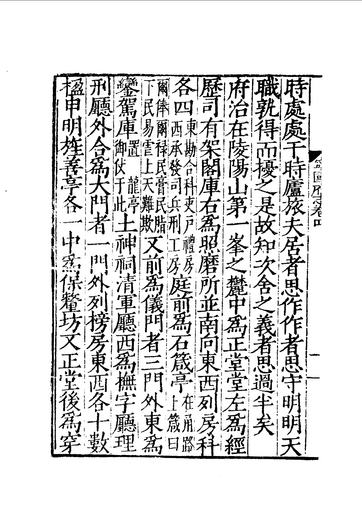 時處處于時廬旅夫居者思作作者思守明明天
職孰得而擾之是故知次舍之義者思過半矣
府治在陵陽山第一峯之麓中為正堂堂左為經
歷司有架閣庫右為照磨所並南向東西列房科
各四東勘合科吏戶禮房西承發司兵刑工房庭前為石箴亭在甬路上箴曰
爾俸爾祿民膏民脂下民易虐上天難欺又前為儀門者三門外東為
鑾駕庫置龍亭御伏于此土神祠清軍廳西為撫字廳理
刑廳外合為大門者一門外列榜房東西各十數
楹申明旌善亭各一中為保釐坊又正堂後為穿